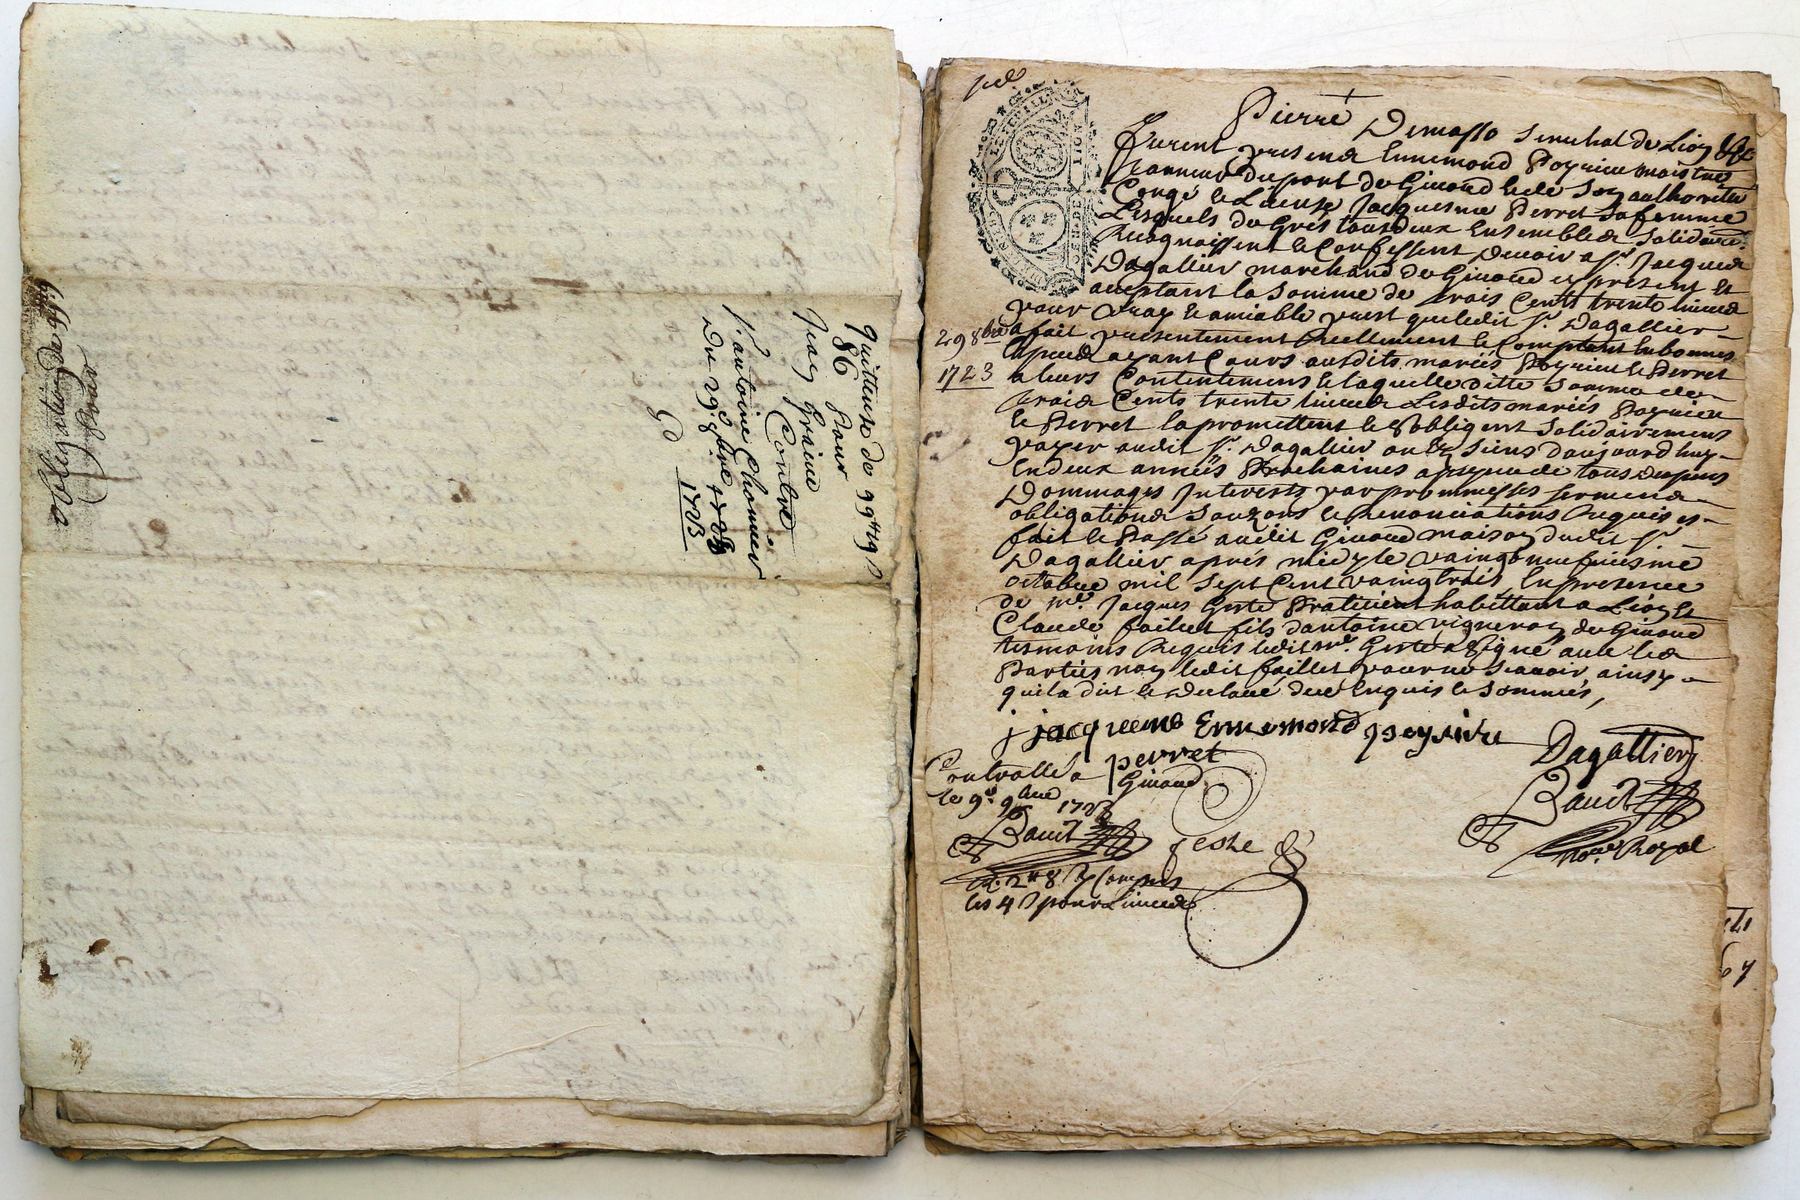 Quittence de 99 lt 19 s
86
pour
Jean Graine
Contre
s.r antoine Chomier
Du 29e 8bre 1723
1723
Pierre Demasso senechal de Lion &c
furent presens Ennemond Poyrieu maistre
de Givord et de son authorité
Congé et License Jacquesme Perret sa femme
Lesquels de Gres tous deux Ensemble et solidaire.t
Recognoissent et Confessent devoir a s.r Jacques
Dagallier marchand de Givord cy present et
acceptant la somme de trois Cents trente livres
pour vray et amiable prest que ledit s.r Dagallier
29 8bre a fait presentement reellement et Comptant En bonnes
Especes ayant Cours ausdits mariés Poyrieu et Perret
1723 a leurs Contentement et laquelle ditte somme de
trois Cents trente livres Lesdits mariés Poyrieu
et Perret la promettent et sobligent solidairement
payer audit s.r Dagallier ou es siens daujourdhuy
En deux années Prochaines a peyne de tous despens
Dommages Interests par prommesses serment
obligations et Renonciations Requises
fait et Passé audit Givord maison dudit s.r
Dagallier aprés midy le vaingt neufuiesme
octobre mil sept Cent vaingt trois En presence
de me. Jacques Geste Praticient habittant a Lion et
Claude faillet fils dantoine vigneron de Givord
tesmoins Requis ledit me. Geste a signé avec les
Parties non ledit faillet pour ne scavoir ainsy
quil a dit et declaré de ce Enquis et sommés,
j jacqueme Ennemond poyrieu Dagallier
perret
Controllé a Givord
le 9e. 9bre 1723
geste
Nore Royal
R. 2 lt 8 s Compris
les 4 s pour Livre